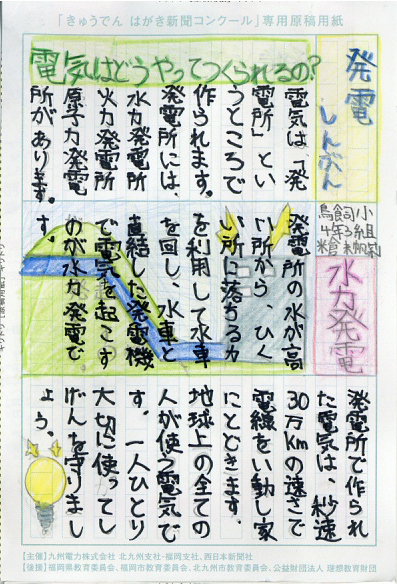 「きゅうでん はがき新聞コンクール」専用原稿用紙
発電
しんぶん
電気はどうやってつくられるの?
電気は「発
電所」とい
うところで
作られます。
発電所には、
水力発電所
火力発電所
原子力発電
所があります。
鳥飼小
4年3組
水力発電
発電所の水が高
い所から、ひく
い所に落ちる力
を利用して水車
を回し、水車と
直結した発電機
で電気を起こす
のが水力発電で
す。
発電所で作られ
た電気は、秒速
30万Kmの速さで
電線をい動し家
にとどきます。
地球上の全ての
人が使う電気で
す。一人ひとり
大切に使ってし
げんを守りまし
ょう。
【主催】九州電力株式会社 北九州支社・福岡支社、西日本新聞社
【後援】福岡県教育委員会、福岡市教育委員会、北九州市教育委員会、公益財団法人 理想教育財団